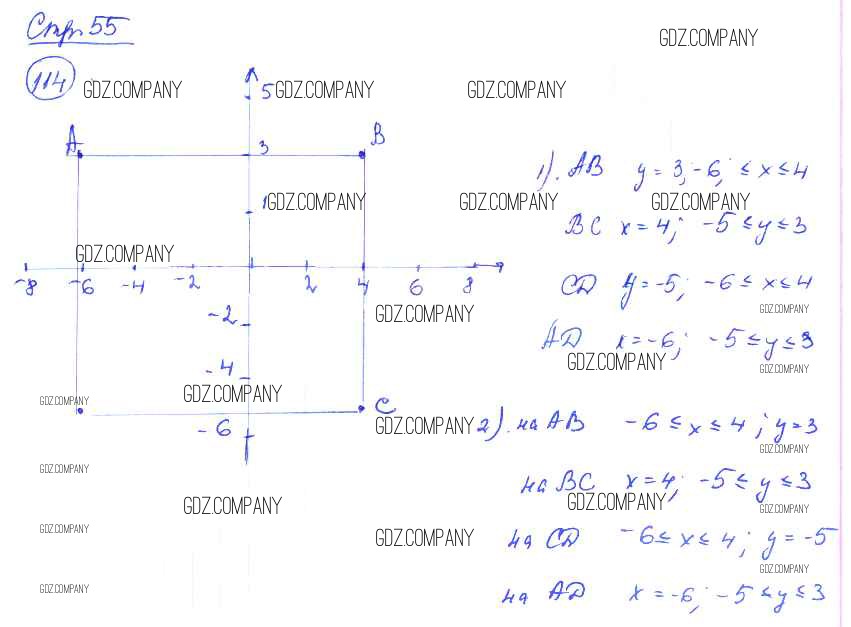 Стр. 55
GDZ.COMPANY
114 GDZ.COMPANY 5 GDZ.COMPANY GDZ.COMPANY
A B
3
1). AB y = 3; -6; ≤ x ≤ 4
1 GDZ.COMPANY GDZ.COMPANY GDZ.COMPANY
BC x = 4; -5 ≤ y ≤ 3
GDZ.COMPANY
-8 -6 -4 -2 2 4 6 8
CD y = -5; -6 ≤ x ≤ 4
-2 GDZ.COMPANY GDZ.COMPANY
AD x = -6; -5 ≤ y ≤ 3
GDZ.COMPANY GDZ.COMPANY
-4
GDZ.COMPANY GDZ.COMPANY
C
-6 GDZ.COMPANY 2). на AB -6 ≤ x ≤ 4; y = 3
GDZ.COMPANY
GDZ.COMPANY
на BC x = 4; -5 ≤ y ≤ 3
GDZ.COMPANY GDZ.COMPANY GDZ.COMPANY
GDZ.COMPANY GDZ.COMPANY
на CD -6 ≤ x ≤ 4; y = -5
GDZ.COMPANY
GDZ.COMPANY
на AD x = -6; -5 ≤ y ≤ 3